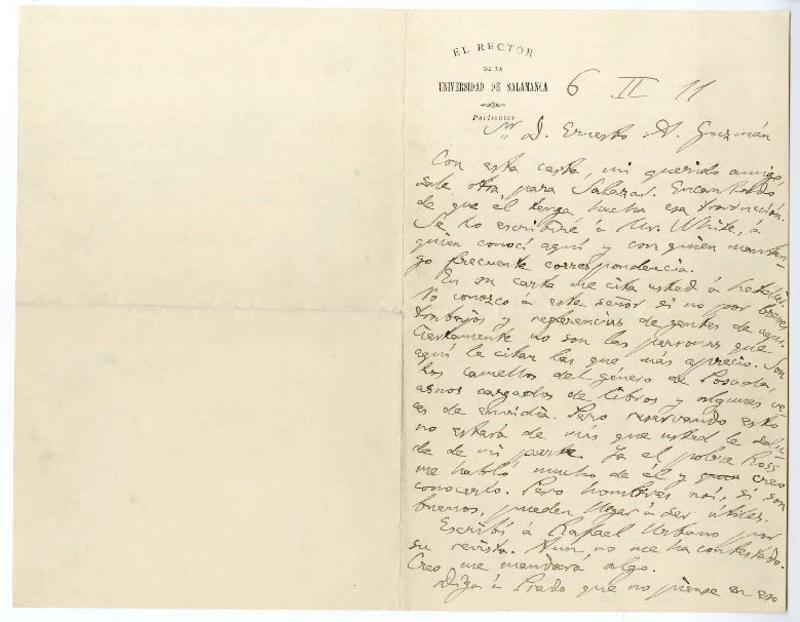 EL RECTOR
DE LA
UNIVERSIDAD DE SALAMANCA
Particular
6 II 11
Sr D. Ernesto A. Guzmán
Con esta carta, mi querido amigo,
sale otra para Salazar. Encantado
de que él tenga hecha esa traducción.
Se lo escribiré á Mr. White, á
quien conocí aquí y con quien manten-
go frecuente correspondencia.
En su carta me cita usted á
No conozco á este señor si no por
trabajos y referencias de gentes de aquí.
Ciertamente no son las personas que
aquí le citan las que más aprecio. Son
los camellos del género de Posada,
asnos cargados de libros y algunas ve-
ces de envidia. Pero reservando esto
no estará de más que usted le salu-
de de mi parte. Ya el pobre Ross
me habló mucho de él y creo
conocerlo. Pero hombres así, si son
buenos, pueden llegar á ser útiles.
Escribí á Rafael Urbano por
su revista. Aun no me ha contestado.
Creo me mandará algo.
Diga á Prado que no piense en eso